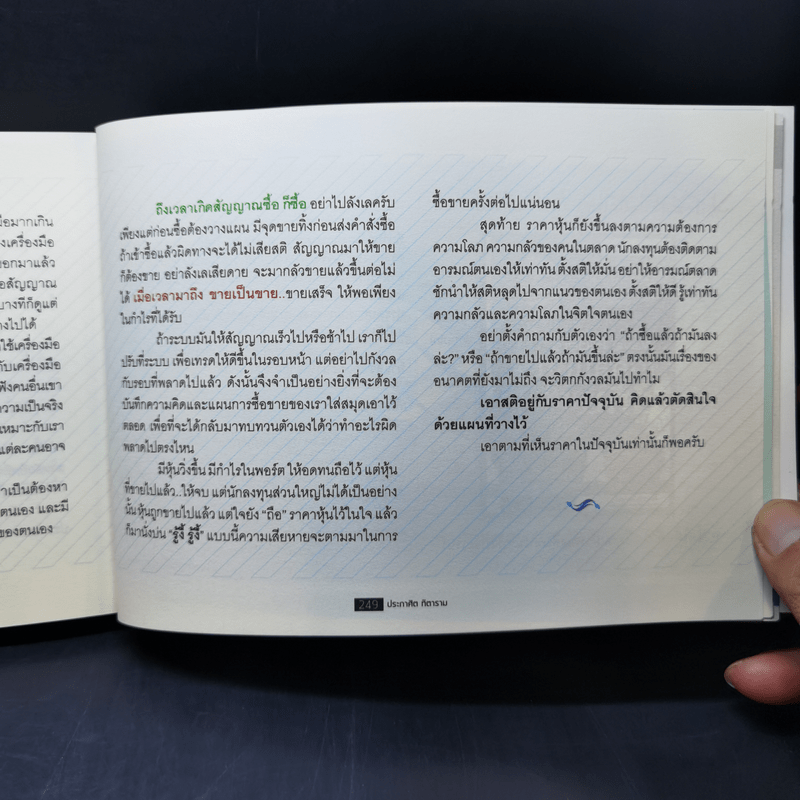 มือมากเกิน
งเครื่องมือ
อกมาแล้ว
อสัญญาณ
บางทีก็ดูแต่
างไปได้
ใช้เครื่องมือ
กับเครื่องมือ
ฟังคนอื่นเขา
ความเป็นจริง
เหมาะกับเรา
แต่ละคนอาจ
าเป็นต้องหา
ตนเอง และมี
ของตนเอง
ถึงเวลาเกิดสัญญาณซื้อ ก็ซื้อ อย่าไปลังเลครับ
เพียงแต่ก่อนซื้อต้องวางแผน มีจุดขายทิ้งก่อนส่งคำสั่งซื้อ
ถ้าเข้าซื้อแล้วผิดทางจะได้ไม่เสียสติ สัญญาณมาให้ขาย
ก็ต้องขาย อย่าลังเลเสียดาย จะมากลัวขายแล้วขึ้นต่อไม่
ได้ เมื่อเวลามาถึง ขายเป็นขาย..ขายเสร็จ ให้พอเพียง
ในกำไรที่ได้รับ
ถ้าระบบมันให้สัญญาณเร็วไปหรือช้าไป เราก็ไป
ปรับที่ระบบ เพื่อเทรดให้ดีขึ้นในรอบหน้า แต่อย่าไปกังวล
กับรอบที่พลาดไปแล้ว ดังนั้นจึงจำเป็นอย่างยิ่งที่จะต้อง
บันทึกความคิดและแผนการซื้อขายของเราใส่สมุดเอาไว้
ตลอด เพื่อที่จะได้กลับมาทบทวนตัวเองได้ว่าทำอะไรผิด
พลาดไปตรงไหน
มีหุ้นวิ่งขึ้น มีกำไรในพอร์ต ให้อดทนถือไว้ แต่หุ้น
ที่ขายไปแล้ว..ให้จบ แต่นักลงทุนส่วนใหญ่ไม่ได้เป็นอย่าง
นั้น หุ้นถูกขายไปแล้ว แต่ใจยัง “ถือ” ราคาหุ้นไว้ในใจ แล้ว
ก็มานั่งบ่น “รู้งี้ รู้งี้” แบบนี้ความเสียหายจะตามมาในการ
ซื้อขายครั้งต่อไปแน่นอน
สุดท้าย ราคาหุ้นก็ยังขึ้นลงตามความต้องการ
ความโลภ ความกลัวของคนในตลาด นักลงทุนต้องติดตาม
อารมณ์ตนเองให้เท่าทัน ตั้งสติให้มั่น อย่าให้อารมณ์ตลาด
ชักนำให้สติหลุดไปจากแนวของตนเอง ตั้งสติให้ดี รู้เท่าทัน
ความกลัวและความโลภในจิตใจตนเอง
อย่าตั้งคำถามกับตัวเองว่า “ถ้าซื้อแล้วถ้ามันลง
ล่ะ?” หรือ “ถ้าขายไปแล้วถ้ามันขึ้นล่ะ” ตรงนั้นมันเรื่องของ
อนาคตที่ยังมาไม่ถึง จะวิตกกังวลมันไปทำไม
เอาสติอยู่กับราคาปัจจุบัน คิดแล้วตัดสินใจ
ด้วยแผนที่วางไว้
เอาตามที่เห็นราคาในปัจจุบันเท่านั้นก็พอครับ
249 ประกาศิต ทิตาราม